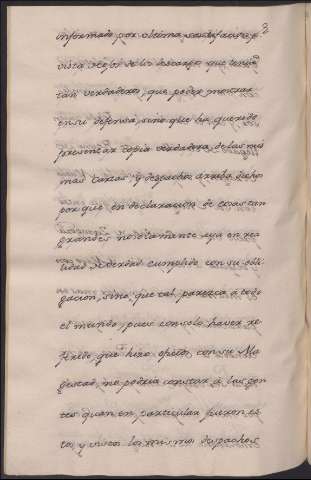 2
informado por ultima
vista de los descargos que tengo
tan verdaderos, que poder mostrar
en su defensa, sino que ha querido
presentar copia verdadera de las mis
mas cartas y despachos arriba dichos
porque en declaracion de cosas tan
grandes no solamente aya en rea
lidad de verdad cumplido con su obli
gacion, sino que tal parezca á todo
el mundo, pues con solo haver re
ferido que hizo oficios con su Ma
gestad, no podria constar á las gen
tes quan en particular fueron es
tos y vistos los mismos despachos